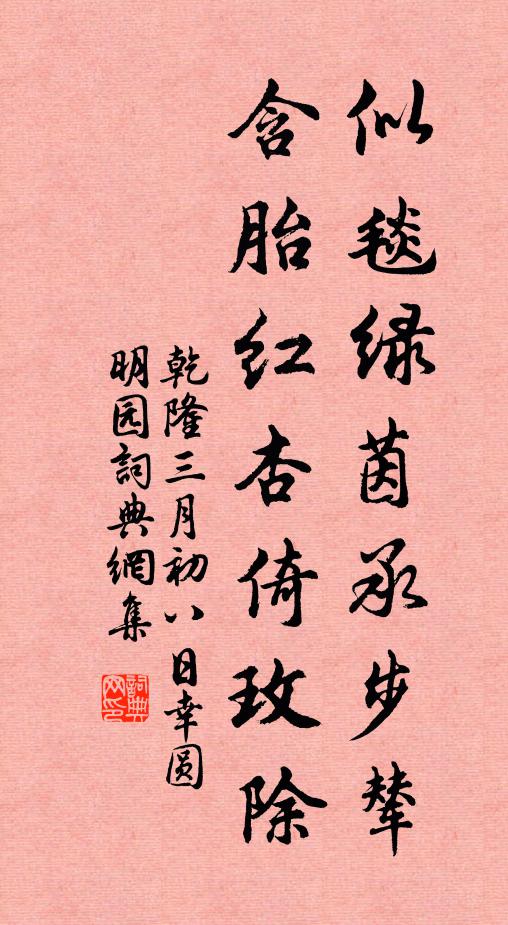 似毯绿茵承步辇
含胎红杏倚玫除
乾隆三月初八日幸圆
明园詞典網集
詞典
网印